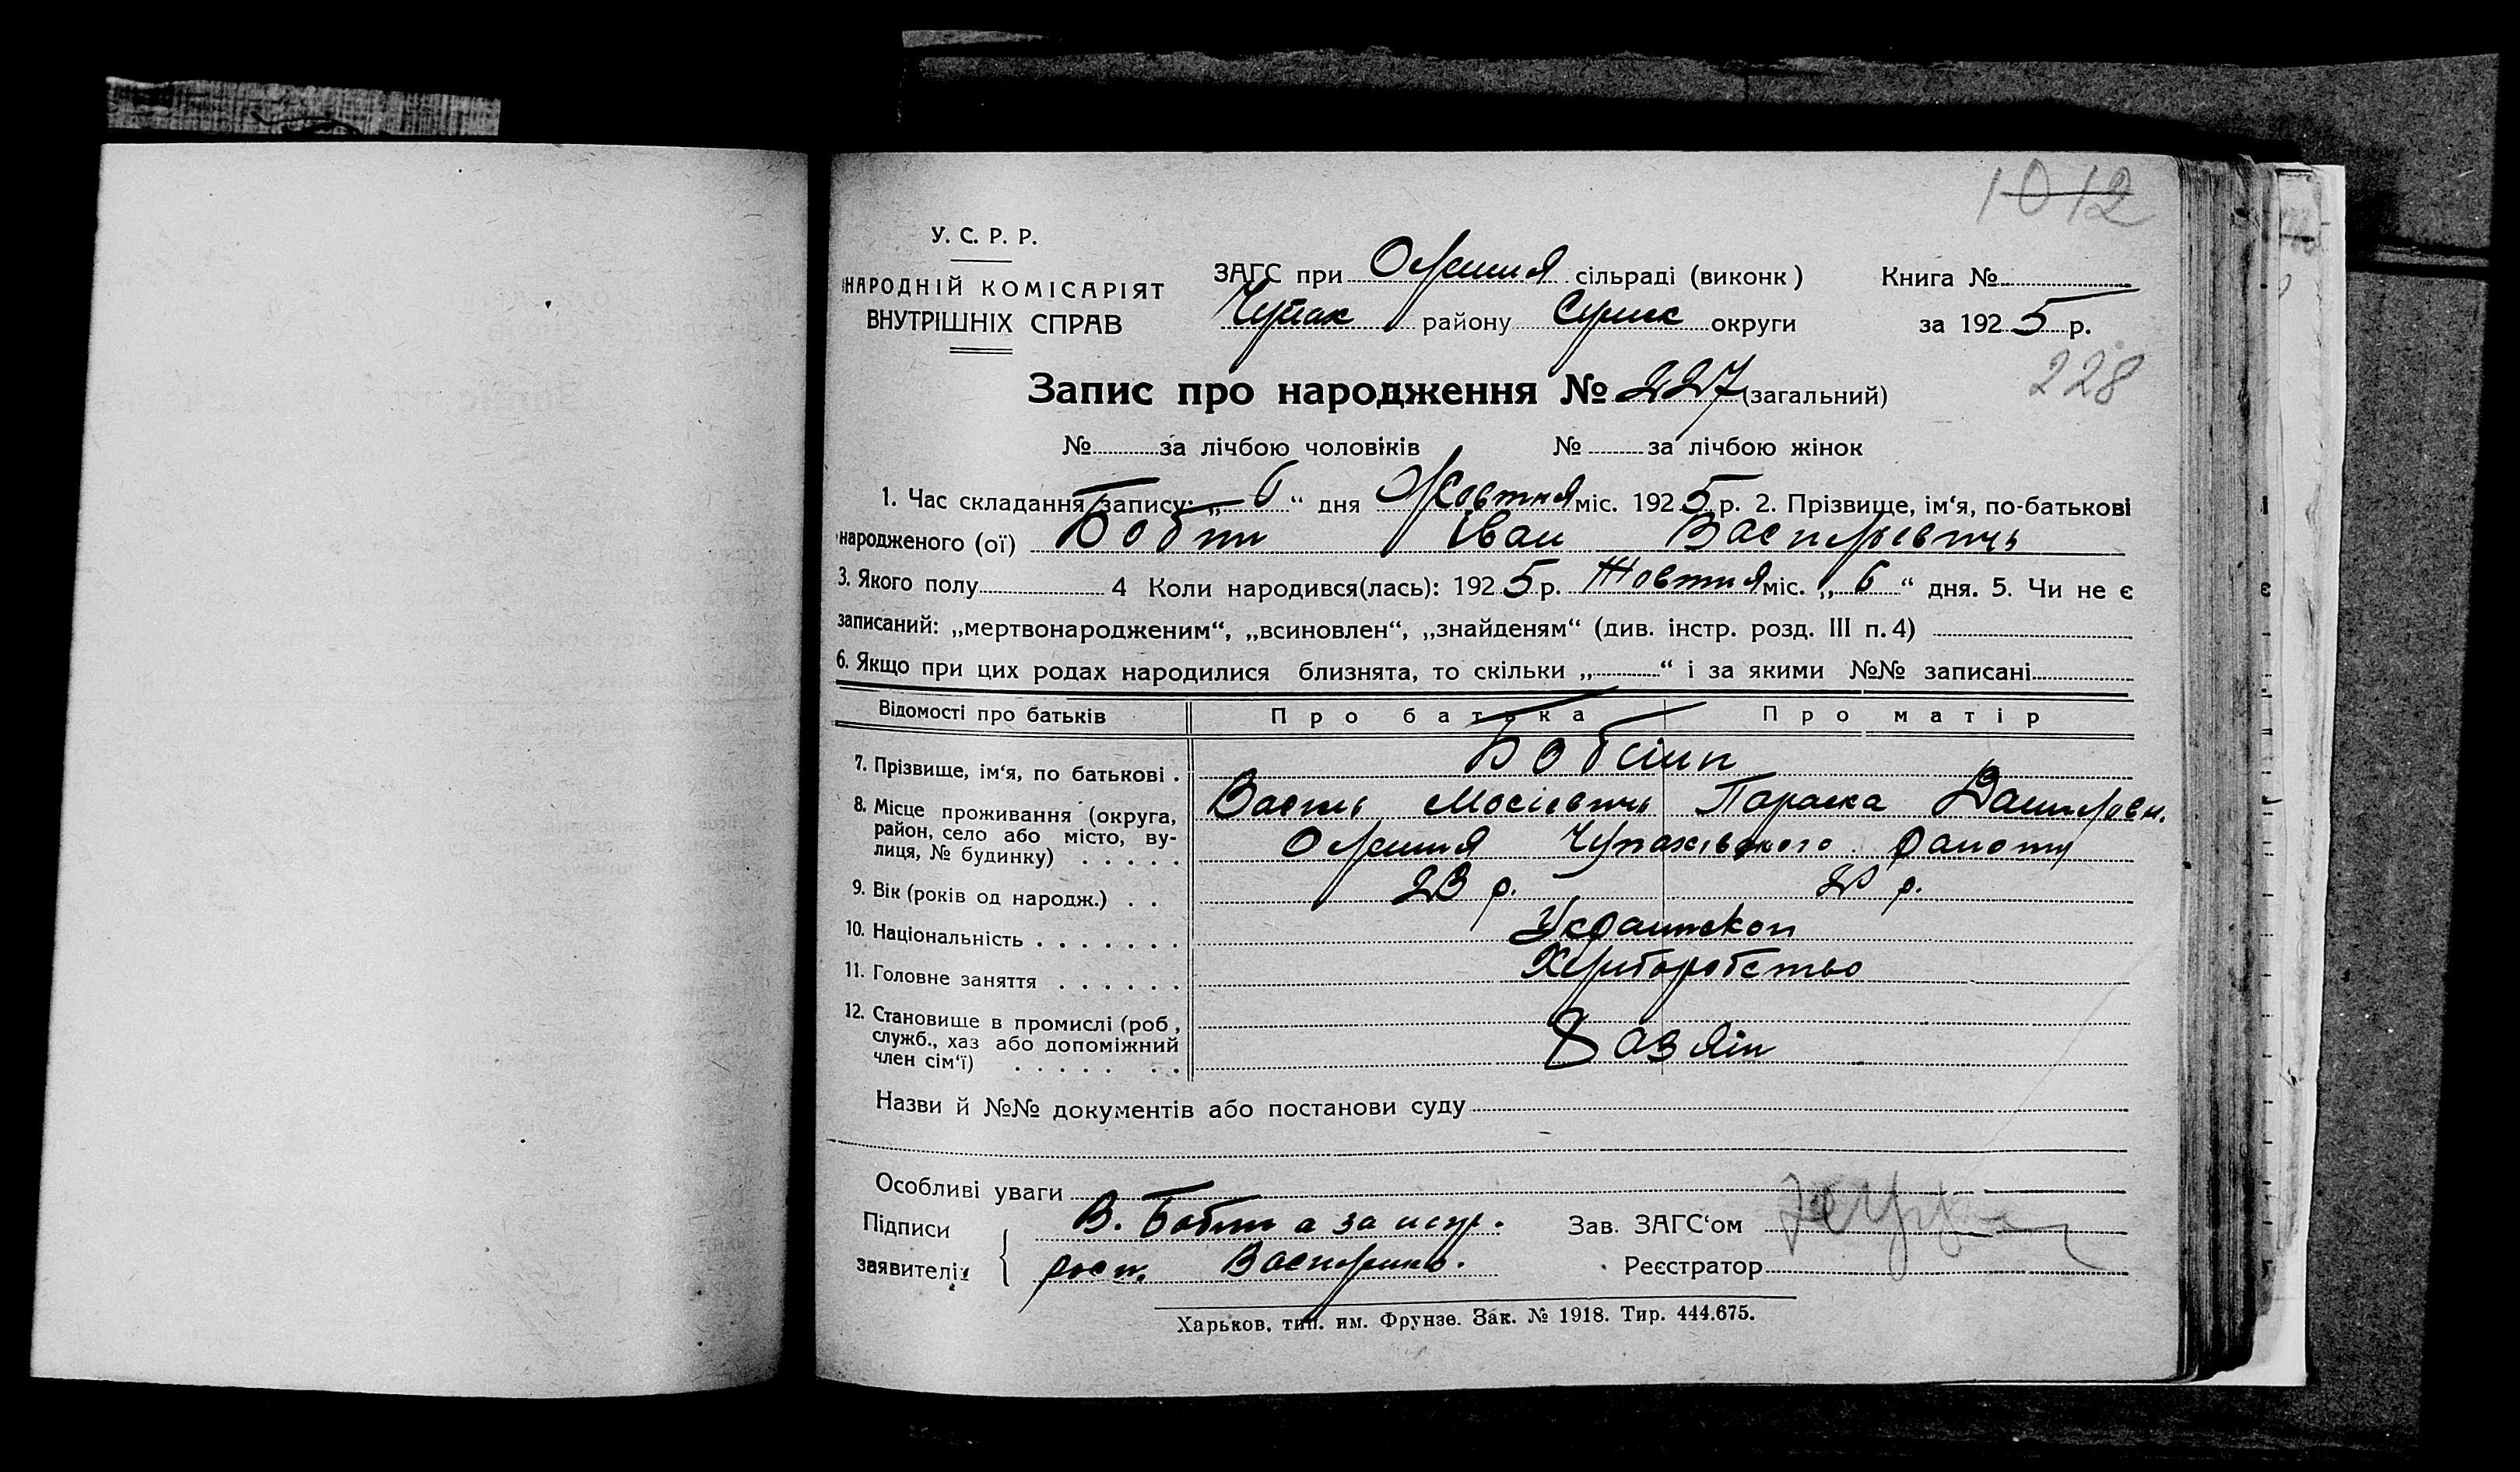 1012
У. С. Р. Р.
НАРОДНІЙ КОМІСАРІЯТ
ВНУТРІШНІХ СПРАВ
ЗАГС при Олешня сільраді (виконк) Книга №
Чупах району Сумск округи за 1925 р.
228
Запис про народження № 227 (загальний)
№ за лічбою чоловіків № за лічбою жінок
1. Час складання запису: „ 6 “ дня Жовтня міс. 1925 р. 2. Прізвище, ім‘я, по-батькові
народженого (ої) Іван Васильевичь
3. Якого полу 4 Коли народився(лась): 1925 р. Жовтня міс. „ 6 “ дня. 5. Чи не є
записаний: „мертвонародженим“, „всиновлен“, „знайденям“ (див. інстр. розд. III п. 4)
6. Якщо при цих родах народилися близнята, то скільки „ “ і за якими №№ записані
Відомості про батьків Про батька Про матір
7. Прізвище, ім‘я, по батькові .
8. Місце проживання (округа, Василь Мосіевичь Параска
район, село або місто, ву-
лиця, № будинку) . . . . . Олешня Чупахівського району
9. Вік (років од народж.) . . 23 р. р.
10. Національність . . . . . . .
11. Головне заняття . . . . . . Хліборобство
12. Становище в промислі (роб,
служб., хаз або допоміжний
член сім‘ї) . . . . . . .
Назви й №№ документів або постанови суду
Особливі уваги
Підписи В. а за
заявителів
Зав. ЗАГС‘ом
Реєстратор
Харьков, тип. им. Фрунзе. Зак. № 1918. Тир. 444.675.